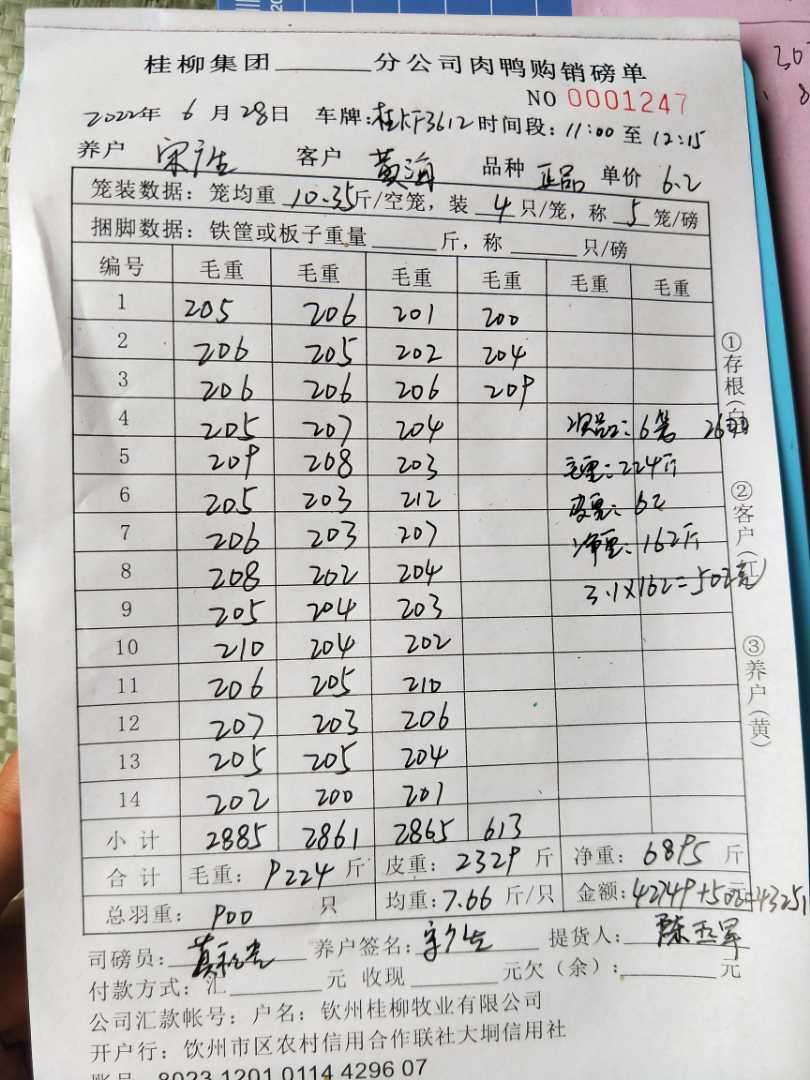 桂柳集团______分公司肉鸭购销磅单
NO 0001247
2022年 6 月 28日 车牌:桂KF3612 时间段: 11:00 至 12:15
养户 宋广生 客户 黄海 品种 正品 单价 6.2
笼装数据: 笼均重 10.35斤/空笼, 装 4 只/笼, 称 5 笼/磅
捆脚数据: 铁筐或板子重量______斤, 称______只/磅
编号 毛重 毛重 毛重 毛重 毛重 毛重
1 205 206 201 200
2 206 205 202 204
3 206 206 206 209
4 205 207 204 次品: 6笼 26
5 209 208 203 毛重: 224斤
6 205 203 212 皮重: 62
7 206 203 207 净重: 162斤
8 208 202 204 3.1×162=502元
9 205 204 203
10 210 204 202
11 206 205 210
12 207 203 206
13 205 205 204
14 202 200 201
小计 2885 2861 2865 613
合计 毛重: 9224 斤 皮重: 2329 斤 净重: 6895 斤
总羽重: 900 只 均重: 7.66 斤/只 金额: 42749+502=43251
司磅员: 养户签名: 宋广生 提货人: 陈
付款方式: 汇______元 收现______元欠(余): ______元
公司汇款帐号: 户名: 钦州桂柳牧业有限公司
开户行: 钦州市区农村信用合作联社大垌信用社
账号 8023 1201 0114 4296 07
①存根(白)
②客户(红)
③养户(黄)